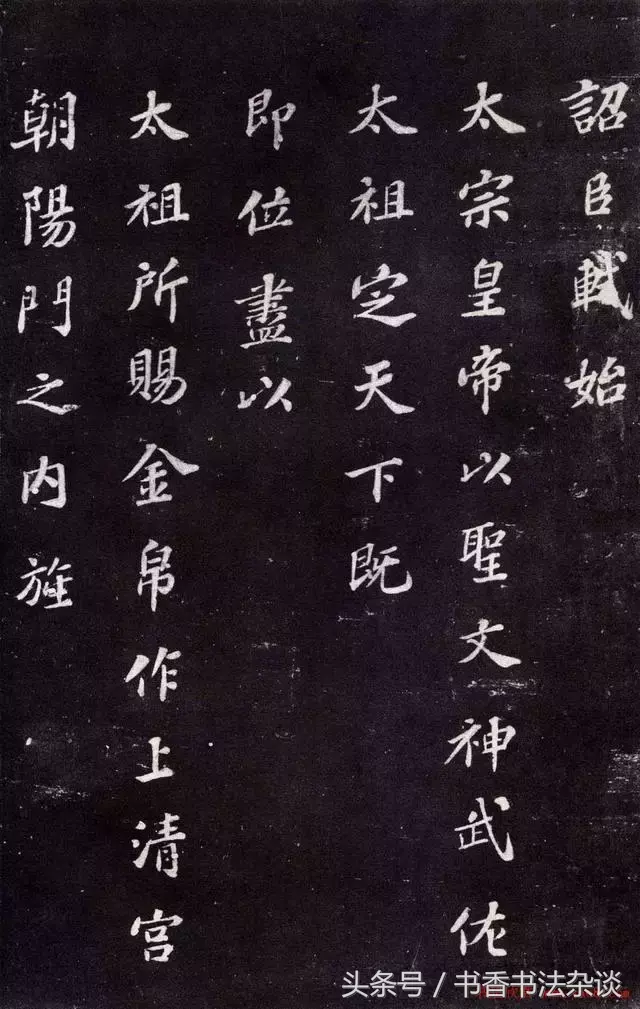 詔臣軾始
太宗皇帝以聖文神武佐
太祖定天下既
即位盡以
太祖所賜金帛作上清宮
朝陽門之內旌
头条号/书香书法杂谈